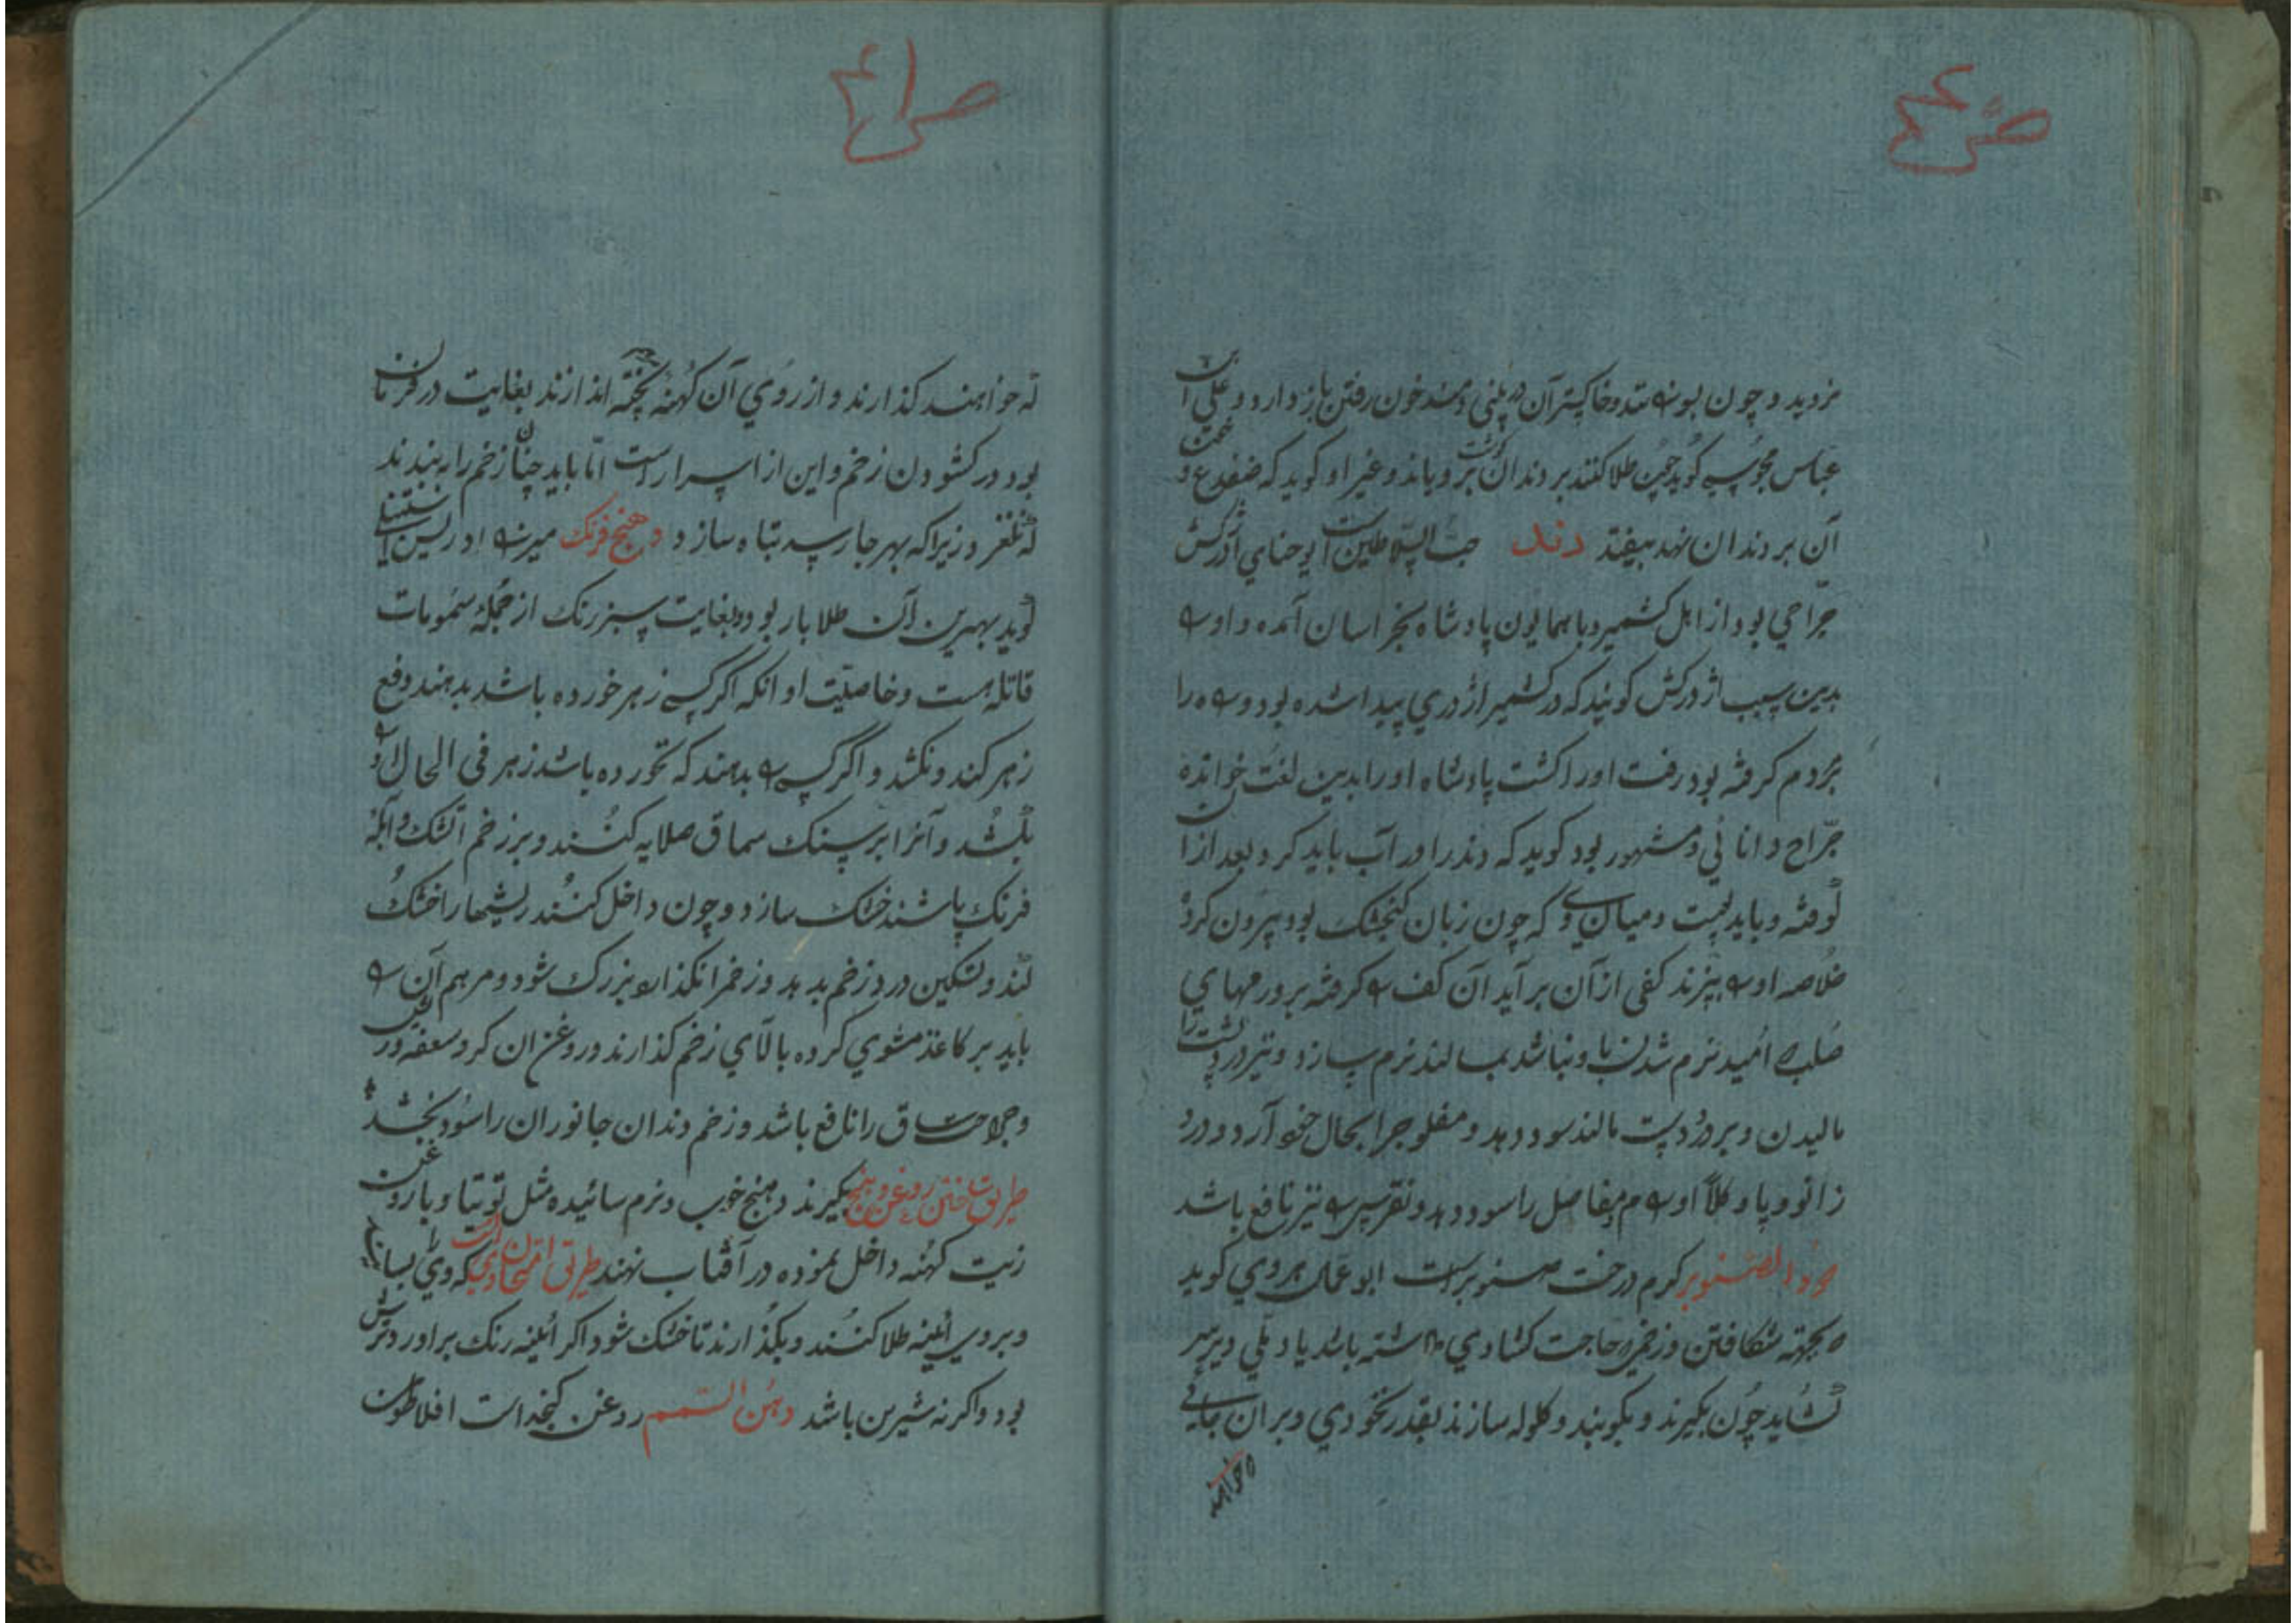 برويد و چون بوي شد و خاكستر آن در بيني دمند خون رفتن باز دارد و علي ابن
عباس مجوسي كويد چون طلا كنند بر دندان گوشت بروياند و غير او كويد كه ضفدع و
آن بر دندان نهد بيفتد دند حب السلاطين است يوحناي اژدركش
جراحي بود از اهل كشمير و با همايون پادشاه بخراسان آمده و او
بدين سبب اژدركش كويند كه در كشمير اژدري پيدا شده بود و راه را
بمردم كرفته بود رفت او را كشت پادشاه او را بدين لغت خوانده
جراح دانائي و مشهور بود كويد كه دند را در آب بايد كرد و بعد از آن
كوفته و بايد و ميان وي كه چون زبان كنجشك بود بيرون كرد
خلاصه او بپزند كفي از آن برآيد آن كف كرفته بر ورمهاي
صلب كه اميد نرم شدن نباشد بمالند نرم سازد و نيز در پشت را
ماليدن و بر درد پشت مالند سود دهد و مفلوج را بحال خود آرد و درد
زانو و پا و كلا اورام مفاصل را سود دهد و نقرس نيز نافع باشد
دود الصنوبر كرم درخت صنوبر است ابو عمان هروي كويد
كه بجهته شكافتن و زخمي كه حاجت كشادي داشته باشد يا دملي دير سر
كشايد چون بكيرند و بكوبند و كلوله سازند بقدر نخودي و بر آن جائي
كه خواهند
كه خواهند كذارند و از روي آن كهنه پخته اندازند بغايت در فرمان
بود در كشودن زخم و اين از اسرار است اما بايد چنان زخم را به بندند
كه نلغزد زيرا كه بهر جا رسد تباه سازد دهنج فرنك
كويد بهترين آن طلا بار بود و بغايت سبز رنك از جمله سمومات
قاتله است و خاصيت او انكه اكر كسي زهر خورده باشد بدهند دفع
زهر كند و نكشد و اگر كسي بدهند كه نخورده باشد زهر في الحال او
بكشد و آنرا بر سنك سماق صلايه كنند و بر زخم آتشك و آبله
فرنك پاشند خشك سازد و چون داخل كنند ريشها را خشك
كند و تسكين درد زخم بدهد و زخم را نكذارد بزرك شود و مرهم آن
بايد بر كاغذ مشوي كرده بالاي زخم كذارند و روغن ان كرد سعفه و ريش
و جراحت ساق را نافع باشد و زخم دندان جانوران را سود بخشد
طريق ساختن روغن دهنج بكيرند دهنج خوب و نرم سائيده مثل توتيا و با روغن
زيت كهنه داخل نموده در آفتاب نهند طريق امتحان وي آنست كه وي را بسايند
و بروي آئينه طلا كنند و بكذارند تا خشك شود اكر آئينه رنك بر اورد ترش
بود و اكر نه شيرين باشد دهن السمسم روغن كنجد است افلاطون